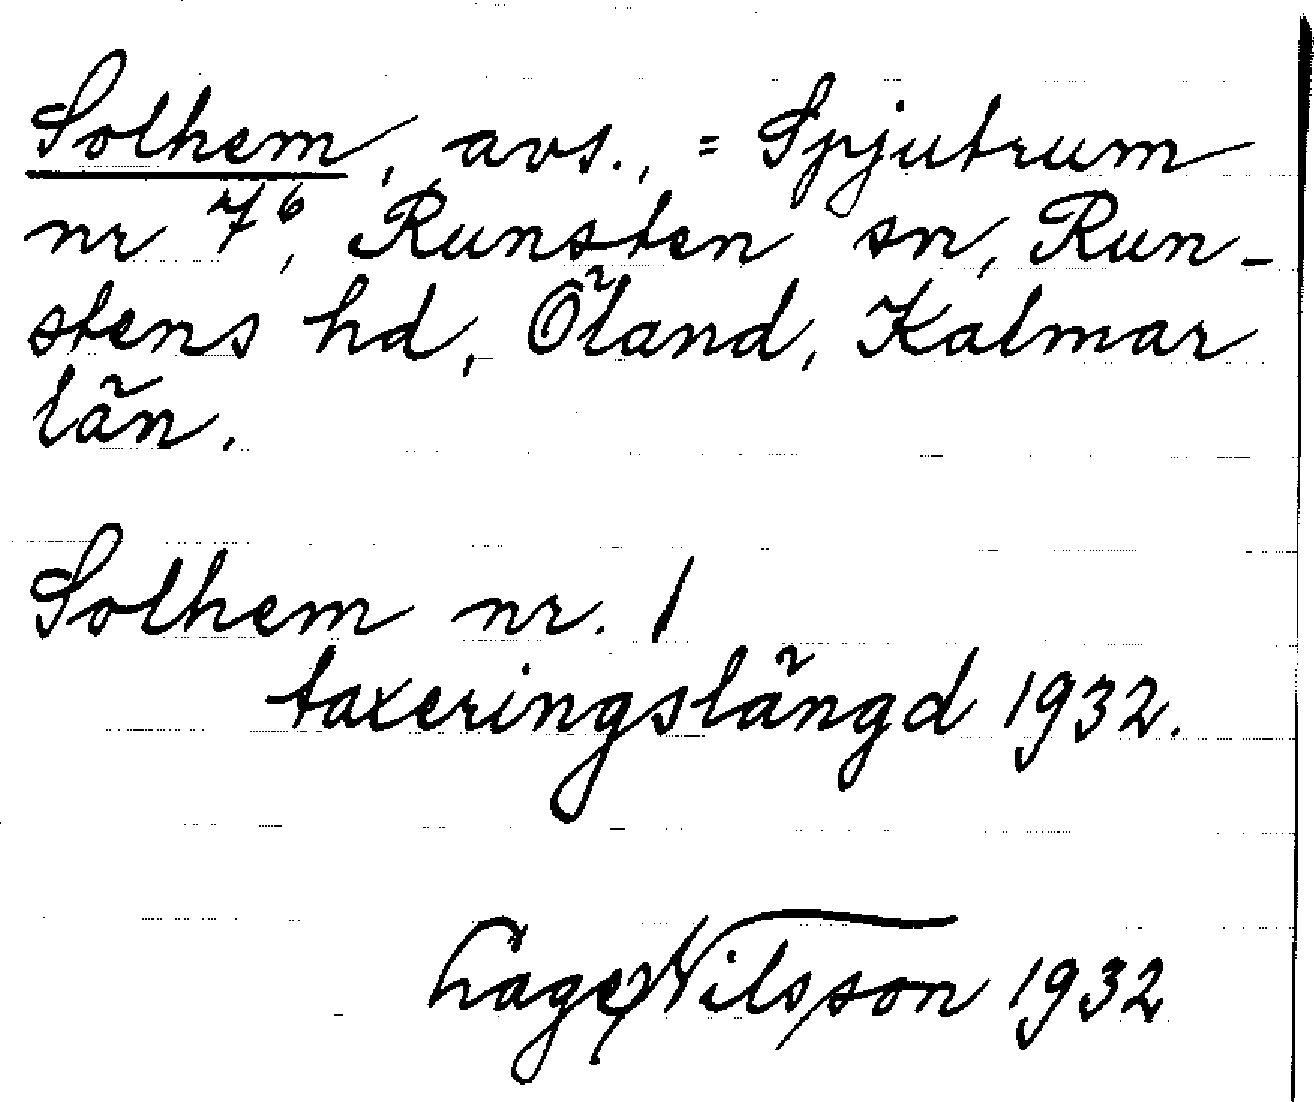 Solhem, avs., = Spjutrum
nr 7⁶, Runsten sn, Run-
stens hd, Öland, Kalmar
län.
Solhem nr. 1
taxeringslängd 1932.
Hage Nilsson 1932